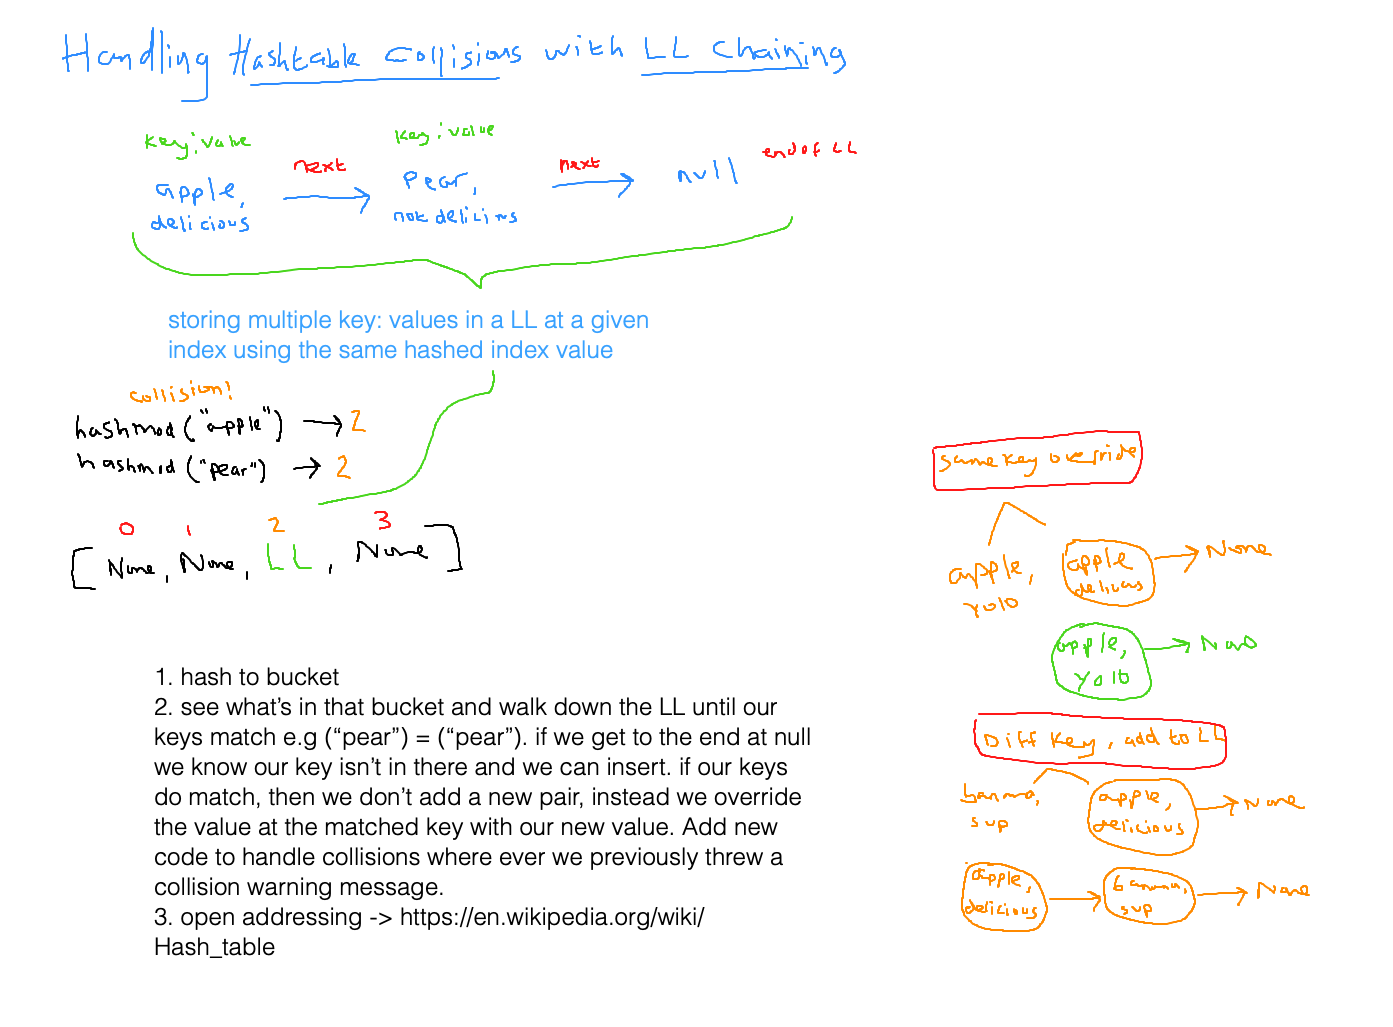 Handling Hashtable Collisions with LL Chaining
key:value
apple,
delicious
next
key:value
Pear,
not delicins
next
null
end of LL
storing multiple key: values in a LL at a given
index using the same hashed index value
collision!
hashmod("apple") → 2
hashmod("pear") → 2
0 1 2 3
[None, None, LL, None]
1. hash to bucket
2. see what’s in that bucket and walk down the LL until our
keys match e.g (“pear”) = (“pear”). if we get to the end at null
we know our key isn’t in there and we can insert. if our keys
do match, then we don’t add a new pair, instead we override
the value at the matched key with our new value. Add new
code to handle collisions where ever we previously threw a
collision warning message.
3. open addressing -> https://en.wikipedia.org/wiki/
Hash_table
same key override
apple,
yolo
apple
delicious
→ None
apple,
yolo
→ None
Diff key, add to LL
banana,
sup
apple,
delicious
→ None
apple,
delicious
→
banana,
sup
→ None